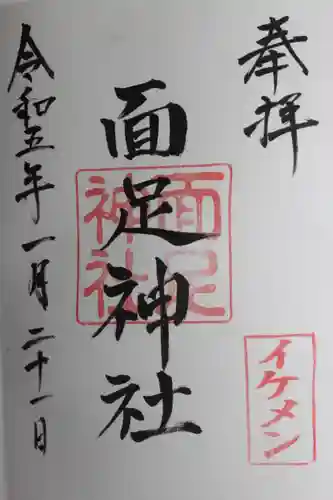 奉拝
イケメン
面足神社
面足神社
令和五年一月二十一日